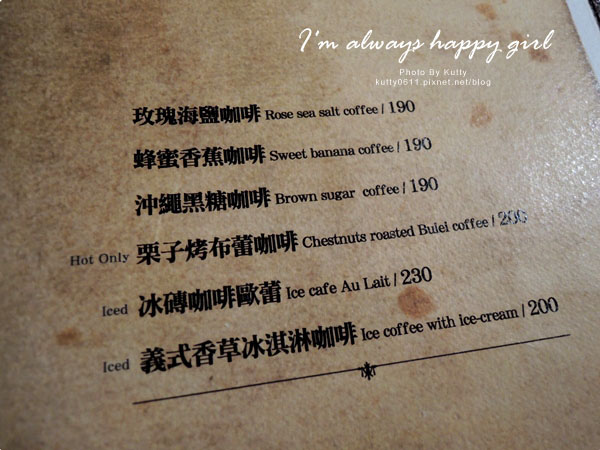 I'm always happy girl
Photo By Kutty
kutty0611.pixnet.net/blog
玫瑰海鹽咖啡 Rose sea salt coffee / 190
蜂蜜香蕉咖啡 Sweet banana coffee / 190
沖繩黑糖咖啡 Brown sugar coffee / 190
Hot Only 栗子烤布蕾咖啡 Chestnuts roasted Bulei coffee / 200
Iced 冰磚咖啡歐蕾 Ice cafe Au Lait / 230
Iced 義式香草冰淇淋咖啡 Ice coffee with ice-cream / 200